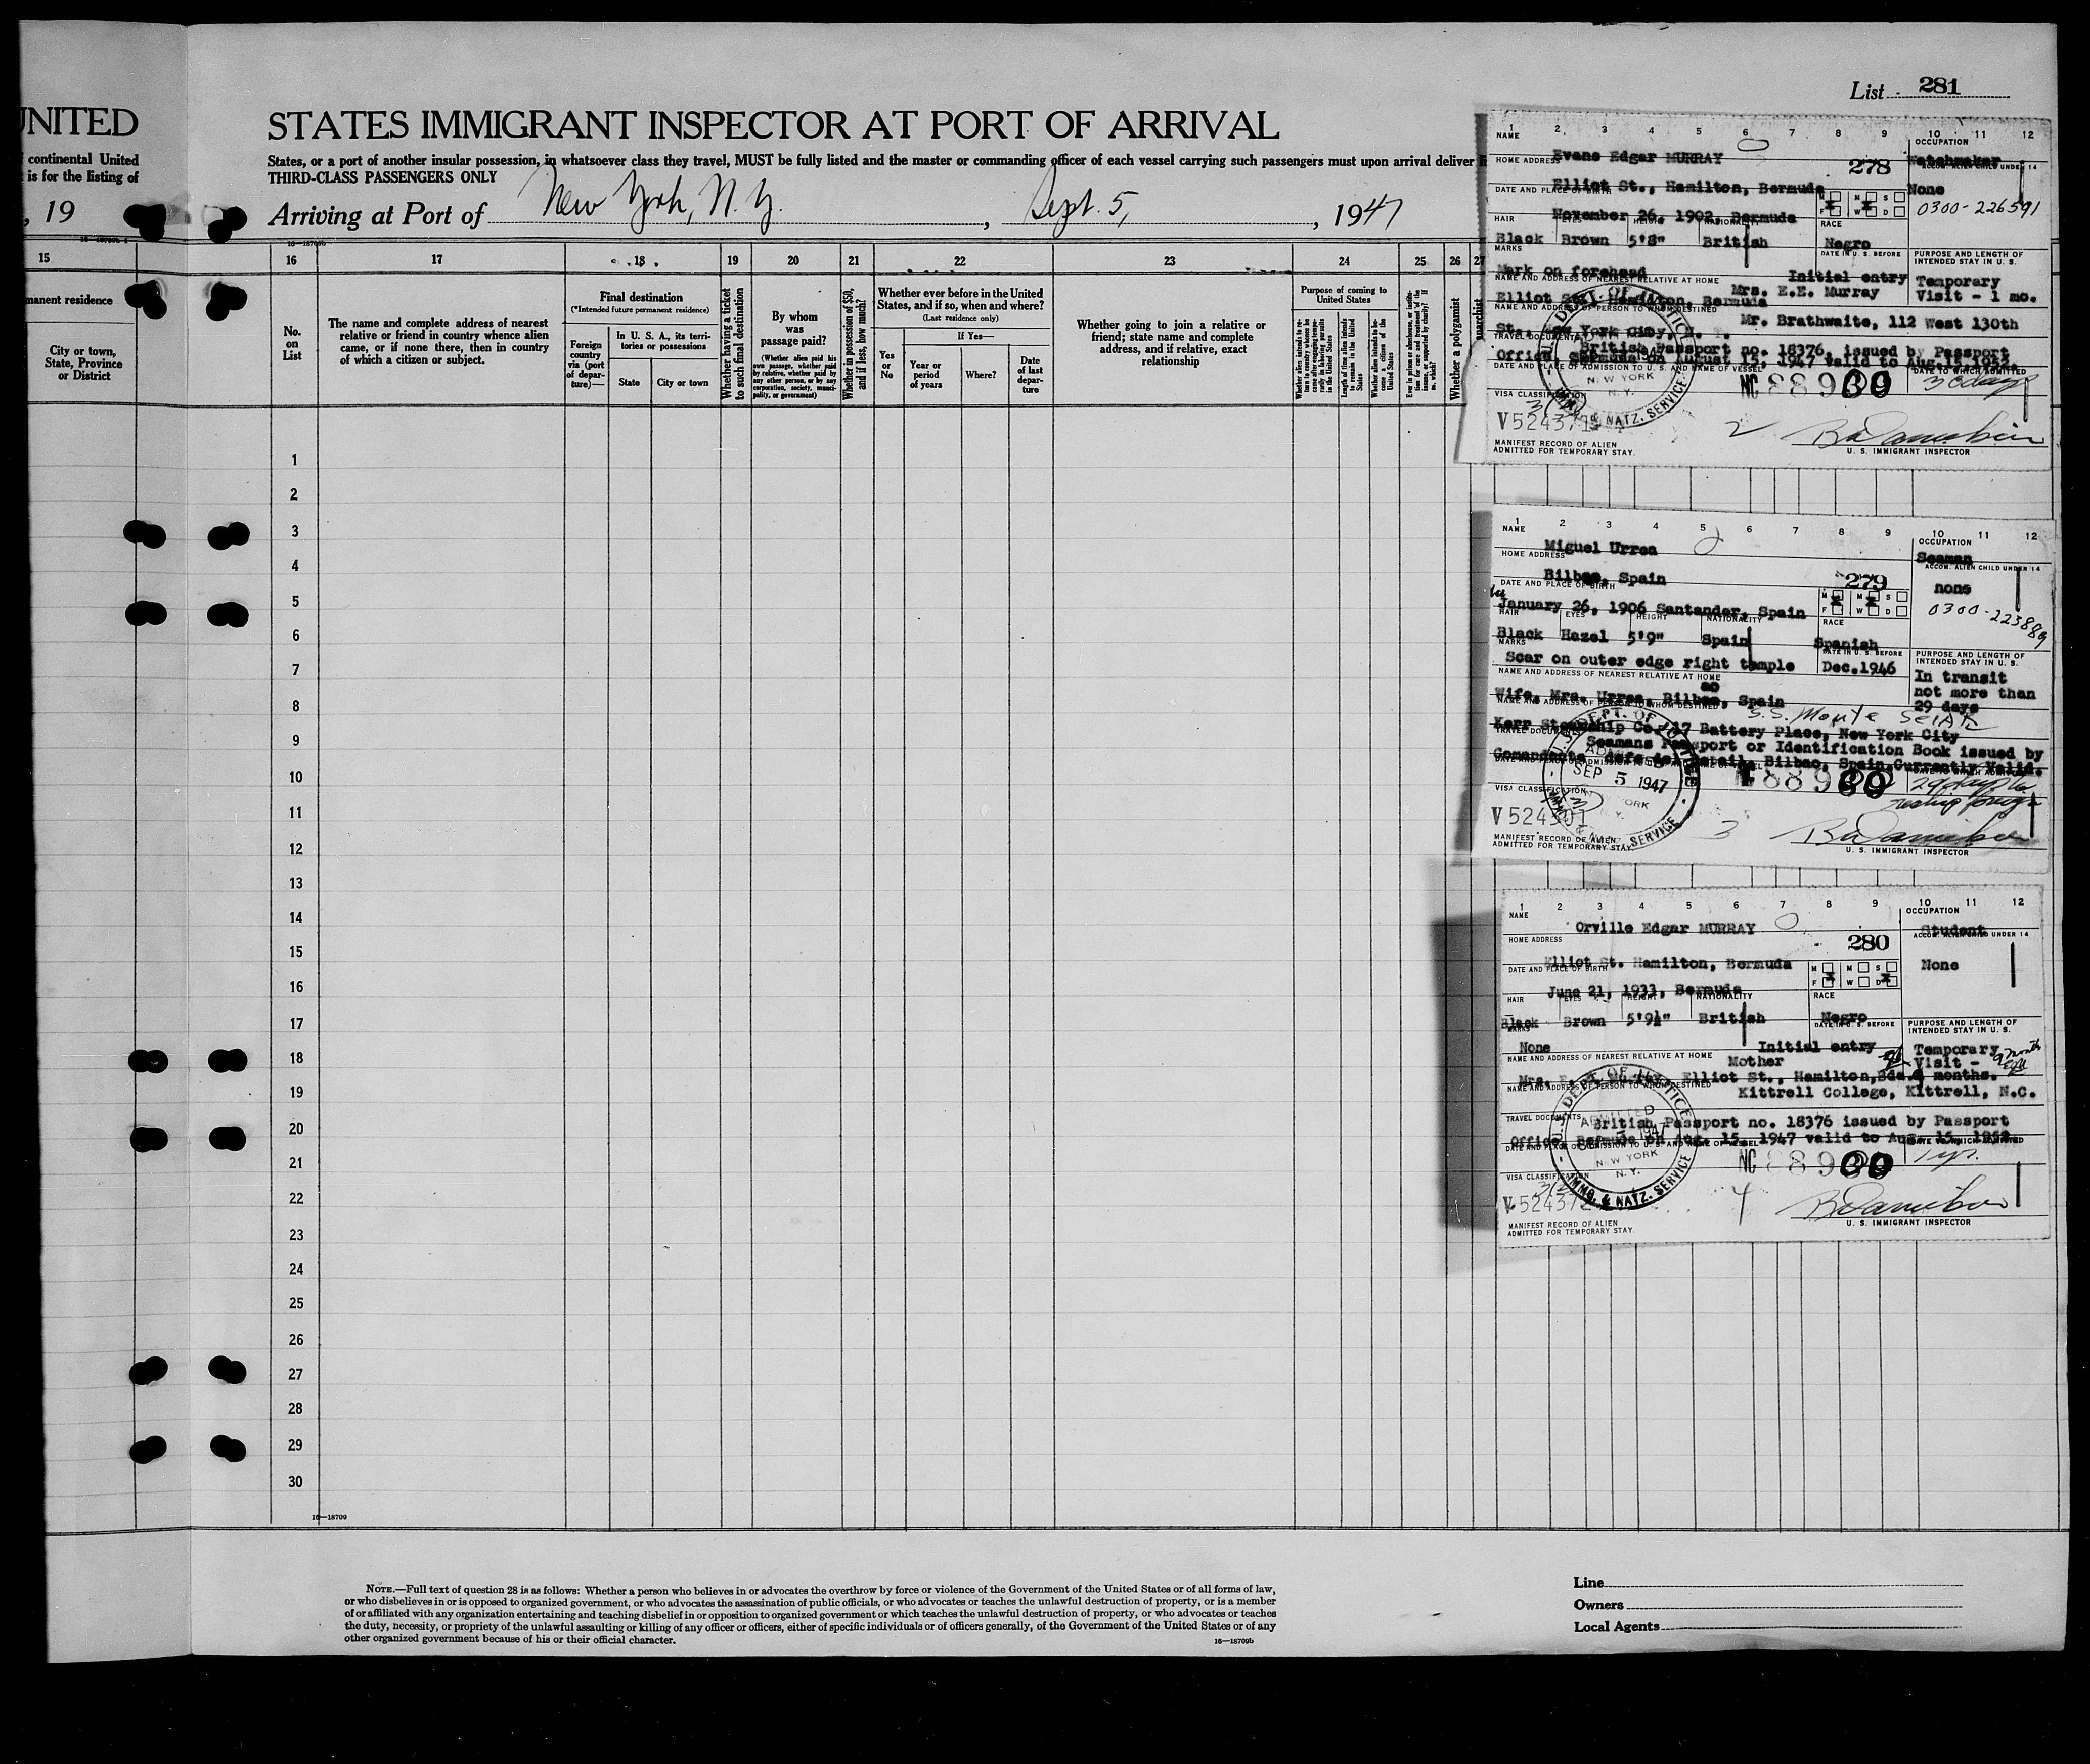 List 281
UNITED
continental United
is for the listing of
, 19
STATES IMMIGRANT INSPECTOR AT PORT OF ARRIVAL
States, or a port of another insular possession, in whatsoever class they travel, MUST be fully listed and the master or commanding officer of each vessel carrying such passengers must upon arrival deliver
THIRD-CLASS PASSENGERS ONLY
Arriving at Port of New York, N. Y. , Sept. 5, , 1947
16—18709b
15
manent residence
City or town,
State, Province
or District
16 17 18 19 20 21 22 23 24 25 26 27
No.
on
List
The name and complete address of nearest
relative or friend in country whence alien
came, or if none there, then in country
of which a citizen or subject.
Final destination
(*Intended future permanent residence)
Foreign
country
via (port
of depar-
ture)—
In U. S. A., its terri-
tories or possessions
State
City or town
Whether having a ticket
to such final destination
By whom
was
passage paid?
(Whether alien paid his
own passage, whether paid
by relative, whether paid by
any other person, or by any
corporation, society, munici-
pality, or government)
Whether in possession of $50,
and if less, how much?
Whether ever before in the United
States, and if so, when and where?
(Last residence only)
Yes
or
No
If Yes—
Year or
period
of years
Where?
Date
of last
depar-
ture
Whether going to join a relative or
friend; state name and complete
address, and if relative, exact
relationship
Purpose of coming to
United States
Whether a polygamist
anarchist
1
2
3
4
5
6
7
8
9
10
11
12
13
14
15
16
17
18
19
20
21
22
23
24
25
26
27
28
29
30
16—18709
1 2 3 4 5 6 7 8 9 10 11 12
NAME
OCCUPATION
Evans Edgar MURRAY
278
Watchmaker
HOME ADDRESS
ACCOM. ALIEN CHILD UNDER 14
Elliot St., Hamilton, Bermuda
None
DATE AND PLACE OF BIRTH
M F M W S D
0300-226591
November 26, 1902, Bermuda
HAIR EYES HEIGHT NATIONALITY RACE
Black Brown 5'8" British Negro
MARKS
DATE IN U. S. BEFORE
PURPOSE AND LENGTH OF
INTENDED STAY IN U. S.
Mark on forehead
Initial entry
Temporary
Visit - 1 mo.
NAME AND ADDRESS OF NEAREST RELATIVE AT HOME
Mrs. E.E. Murray
Elliot St., Hamilton, Bermuda
NAME AND ADDRESS OF PERSON TO WHOM DESTINED
Mr. Brathwaite, 112 West 130th
St., New York City, N. Y.
TRAVEL DOCUMENTS
British Passport no. 18376, issued by Passport
Office, Bermuda on August 15, 1947 valid to Aug. 15, 1952
DATE AND PLACE OF ADMISSION TO U. S. AND NAME OF VESSEL
DATE TO WHICH ADMITTED
NEW YORK
N. Y.
NATZ. SERVICE
NC 88930
30 days
VISA CLASSIFICATION
3(2)
V524371
2
MANIFEST RECORD OF ALIEN
ADMITTED FOR TEMPORARY STAY.
U. S. IMMIGRANT INSPECTOR
1 2 3 4 5 6 7 8 9 10 11 12
NAME
OCCUPATION
Miguel Urrea
Seaman
HOME ADDRESS
ACCOM. ALIEN CHILD UNDER 14
Bilbao, Spain
279
none
DATE AND PLACE OF BIRTH
M F M W S D
January 26, 1906 Santander, Spain
0300-223889
HAIR EYES HEIGHT NATIONALITY RACE
Black Hazel 5'9" Spain Spanish
MARKS
DATE IN U. S. BEFORE
PURPOSE AND LENGTH OF
INTENDED STAY IN U. S.
Scar on outer edge right temple
Dec.1946
In transit
not more than
29 days
NAME AND ADDRESS OF NEAREST RELATIVE AT HOME
Wife, Mrs. Urrea, Bilbao, Spain
NAME AND ADDRESS OF PERSON TO WHOM DESTINED
S.S. Monte
Kerr Steamship Co. 17 Battery Place, New York City
TRAVEL DOCUMENTS
Seamans Passport or Identification Book issued by
Bilbao, Spain Currently Valid.
SEP 5 1947
88930
29 days
VISA CLASSIFICATION
V524301
3
MANIFEST RECORD OF ALIEN
ADMITTED FOR TEMPORARY STAY.
U. S. IMMIGRANT INSPECTOR
1 2 3 4 5 6 7 8 9 10 11 12
NAME
OCCUPATION
Orville Edgar MURRAY
Student
HOME ADDRESS
280
ACCOM. ALIEN CHILD UNDER 14
Elliot St. Hamilton, Bermuda
None
DATE AND PLACE OF BIRTH
M F M W S D
June 21, 1933, Bermuda
HAIR EYES HEIGHT NATIONALITY RACE
Black Brown 5'9½" British Negro
MARKS
DATE IN U. S. BEFORE
PURPOSE AND LENGTH OF
INTENDED STAY IN U. S.
None
Initial entry
Temporary
Visit -
9 months.
NAME AND ADDRESS OF NEAREST RELATIVE AT HOME
Mother
Elliot St., Hamilton, Bda.
NAME AND ADDRESS OF PERSON TO WHOM DESTINED
Kittrell College, Kittrell, N.C.
TRAVEL DOCUMENTS
British Passport no. 18376 issued by Passport
Office, Bermuda on Aug. 15, 1947 valid to Aug. 15, 1952
DATE AND PLACE OF ADMISSION TO U. S. AND NAME OF VESSEL
DATE TO WHICH ADMITTED
U. S. DEPT. OF JUSTICE
ADMITTED
1947
NEW YORK
N. Y.
IMMG. & NATZ. SERVICE
NC 88930
1 yr.
VISA CLASSIFICATION
3(2)
V-52437
4
MANIFEST RECORD OF ALIEN
ADMITTED FOR TEMPORARY STAY.
U. S. IMMIGRANT INSPECTOR
NOTE.—Full text of question 28 is as follows: Whether a person who believes in or advocates the overthrow by force or violence of the Government of the United States or of all forms of law,
or who disbelieves in or is opposed to organized government, or who advocates the assassination of public officials, or who advocates or teaches the unlawful destruction of property, or is a member
of or affiliated with any organization entertaining and teaching disbelief in or opposition to organized government or which teaches the unlawful destruction of property, or who advocates or teaches
the duty, necessity, or propriety of the unlawful assaulting or killing of any officer or officers, either of specific individuals or of officers generally, of the Government of the United States or of any
other organized government because of his or their official character.
16—18709b
Line
Owners
Local Agents